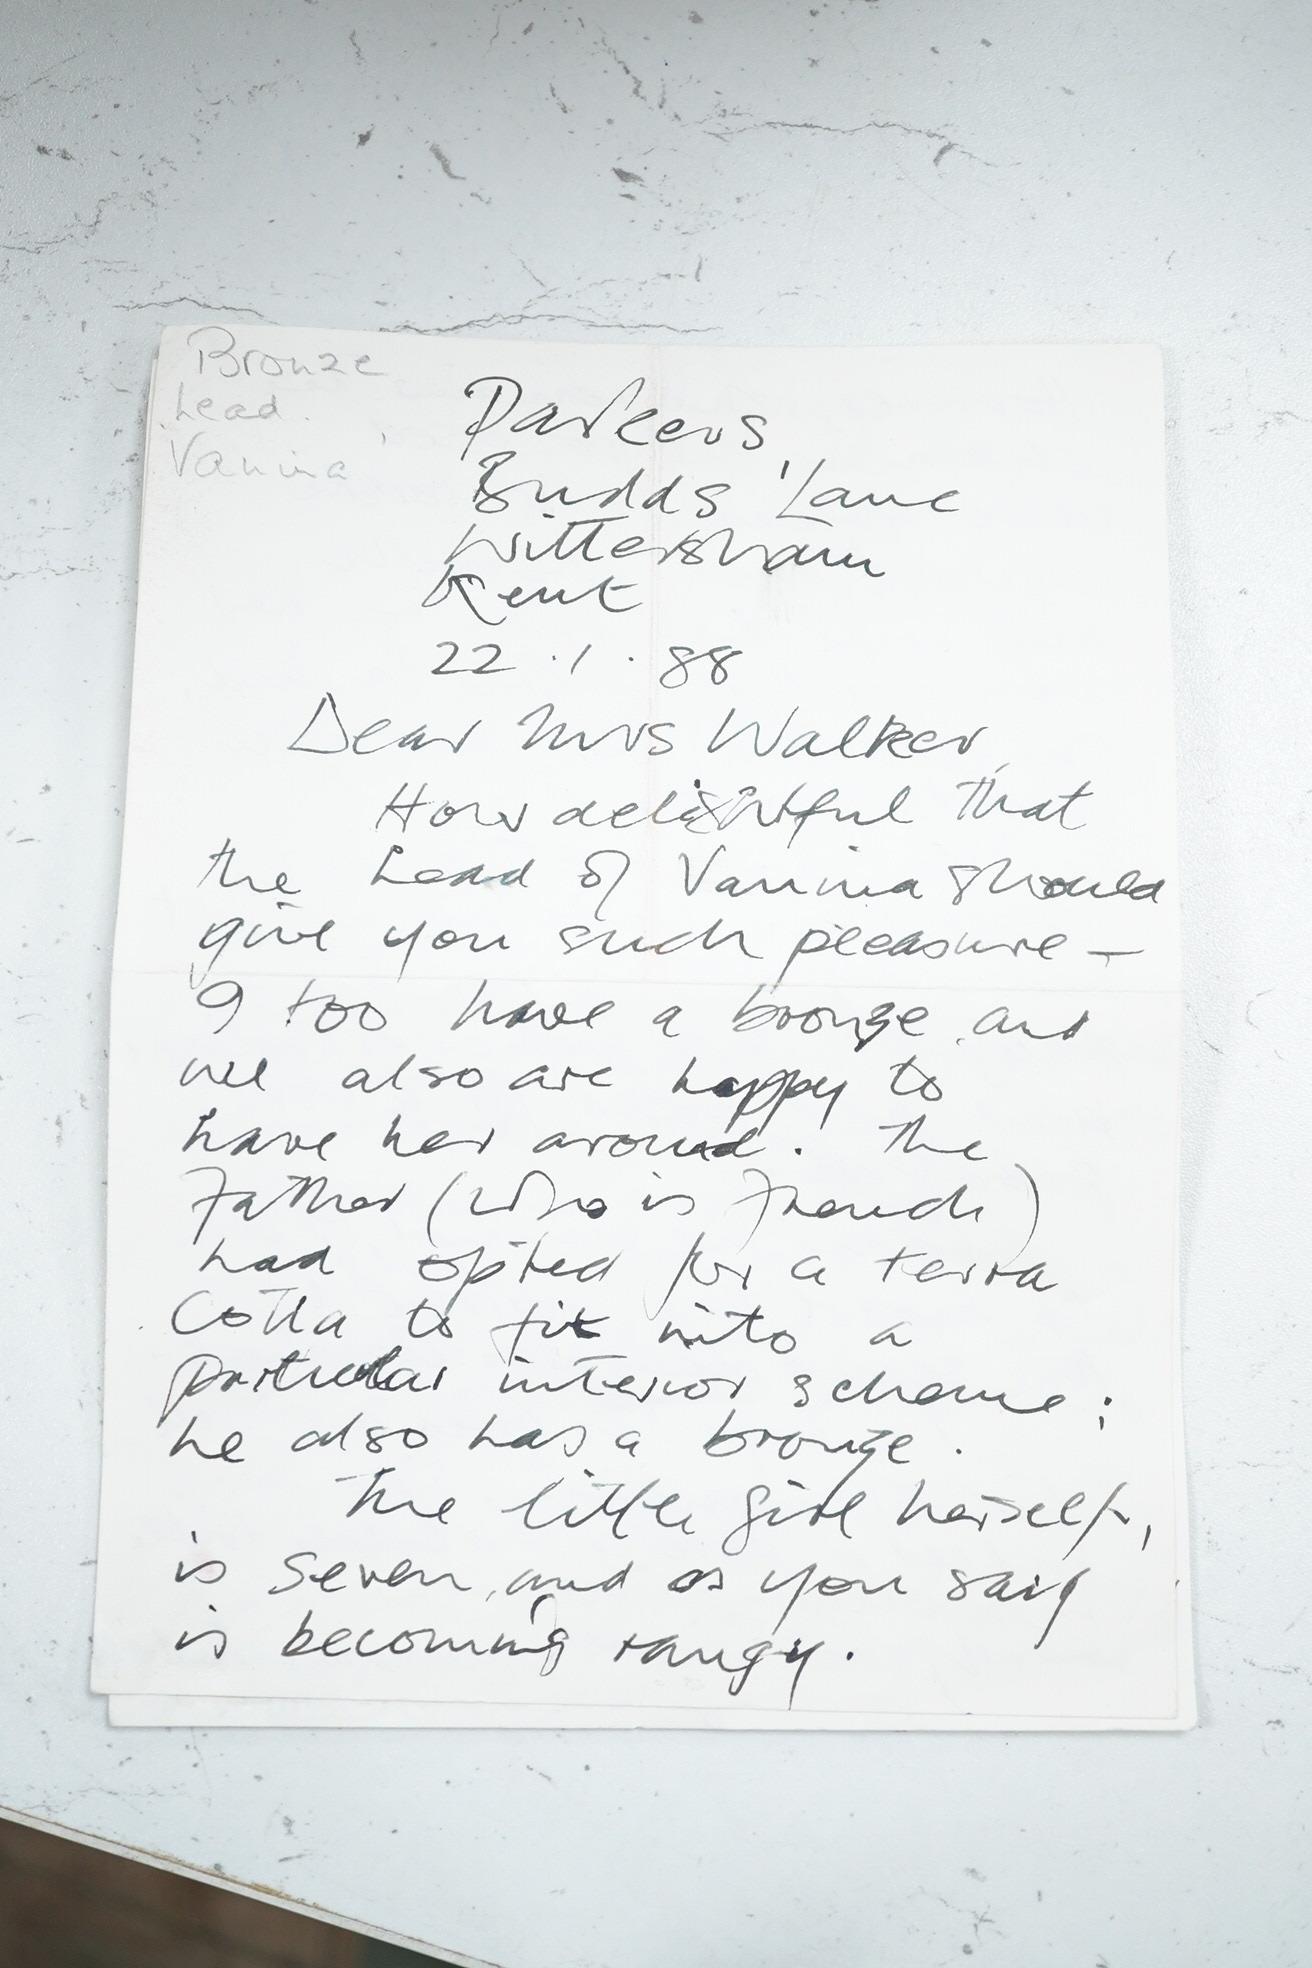 Bronze
head.
Vanina
Parkers
Budds Lane
Wittersham
Kent
22.1.88
Dear Mrs Walker,
How delightful that
the head of Vanina should
give you such pleasure –
I too have a bronze, and
we also are happy to
have her around. The
Father (who is French)
had opted for a terra
Cotta to fit into a
particular interior scheme;
he also has a bronze.
The little girl herself,
is seven, and as you say
is becoming rangy.